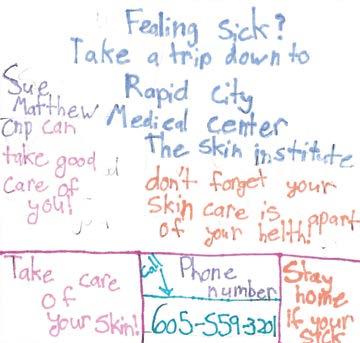 Fealing sick?
Take a trip down to
Rapid city
Medical center
The skin institute
Sue
Matthew
cnp can
take good
care of
you!
don't forget your
skin care is apart
of your helth!
Take care
of
your skin!
call
Phone
number
605-559-3201
Stay
home
if your
sick